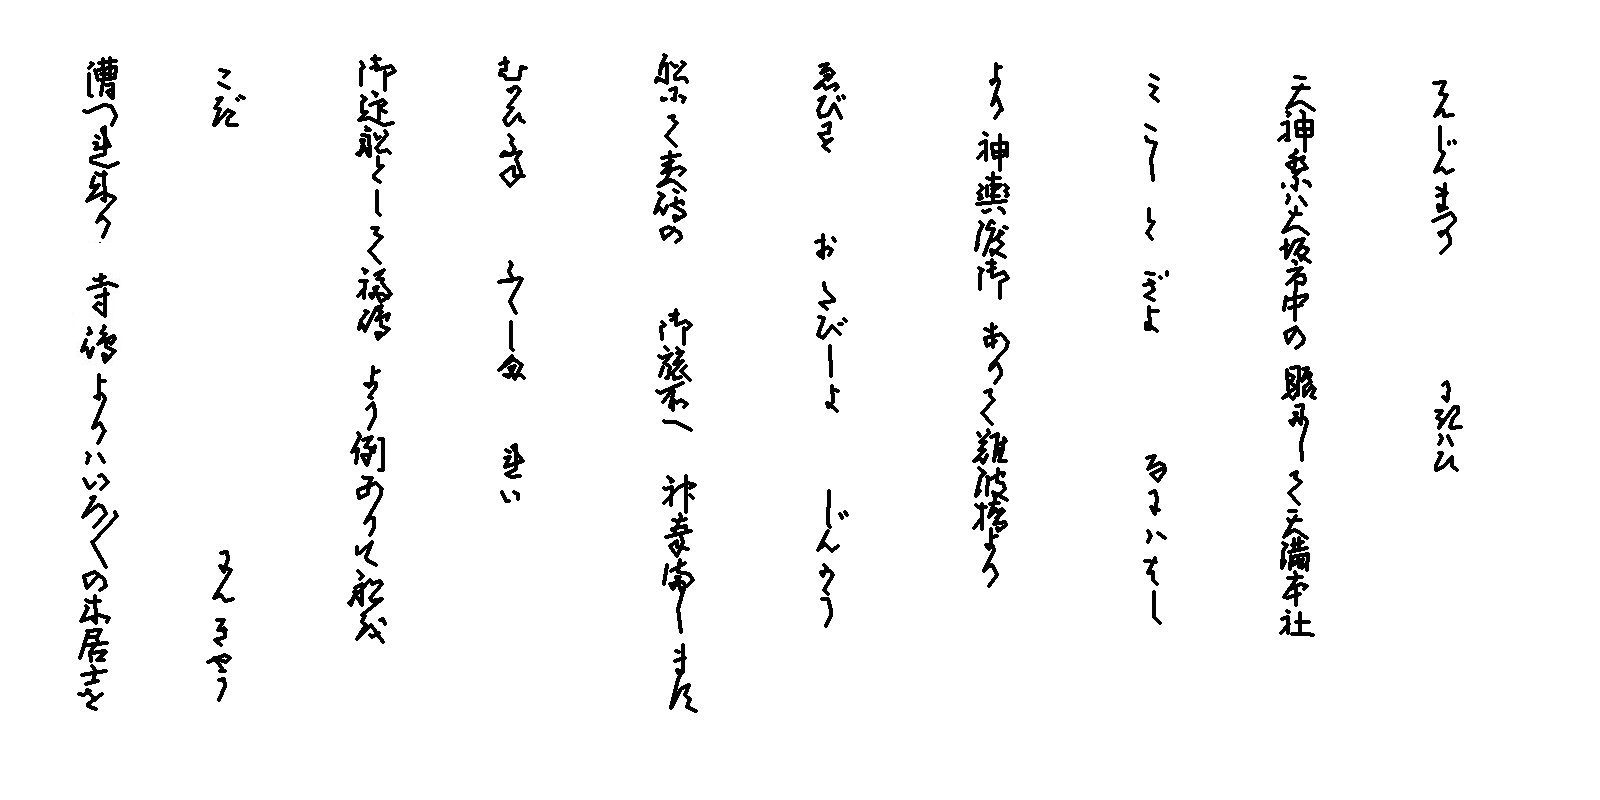 てんじんまつり　にぎハひ
天神祭ハ大坂市中の賑にして天満本社
ミこし　とぎよ　なにハはし
より神輿渡御ありて難波橋より
ゑびす　おたびしよ　じんかう
船にて夷嶋の御旅所へ神幸まします
むかひふね　ふくしま　れい
御迎船として福嶋より例ありて船を
こぎ　にんぎやう
漕つれ来り寺嶋よりハいろ〳〵の木居士を